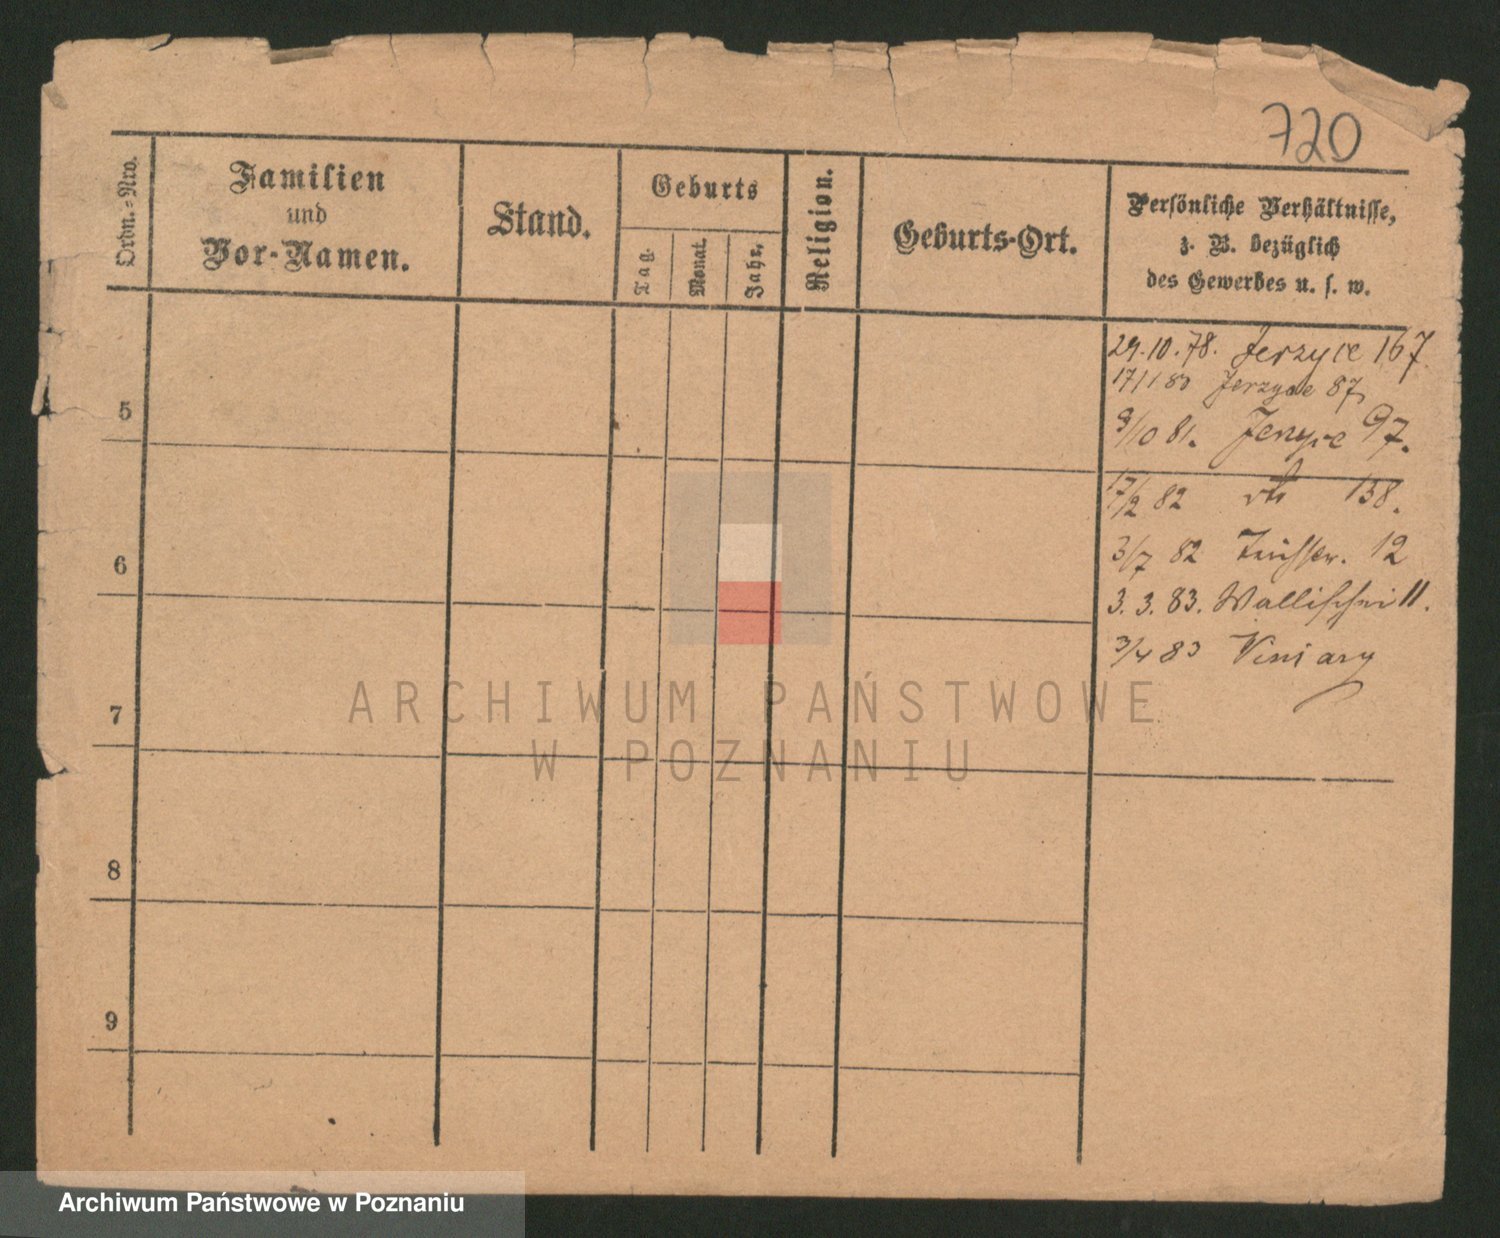 720
Ordn.-Nro.
Familien
und
Vor-Namen.
Stand.
Geburts
Tag.
Monat.
Jahr.
Religion.
Geburts-Ort.
Persönliche Verhältnisse,
z. B. bezüglich
des Gewerbes u. s. w.
29.10.78. Jerzyce 167
Jerzyce 87
5
9/10 81. Jerzyce 97.
17/2 82 dto 138.
6
3/7 82 12
3.3.83. Wallischei 11.
3/4 83 Winiary
7
8
9
ARCHIWUM PAŃSTWOWE
W POZNANIU
Archiwum Państwowe w Poznaniu